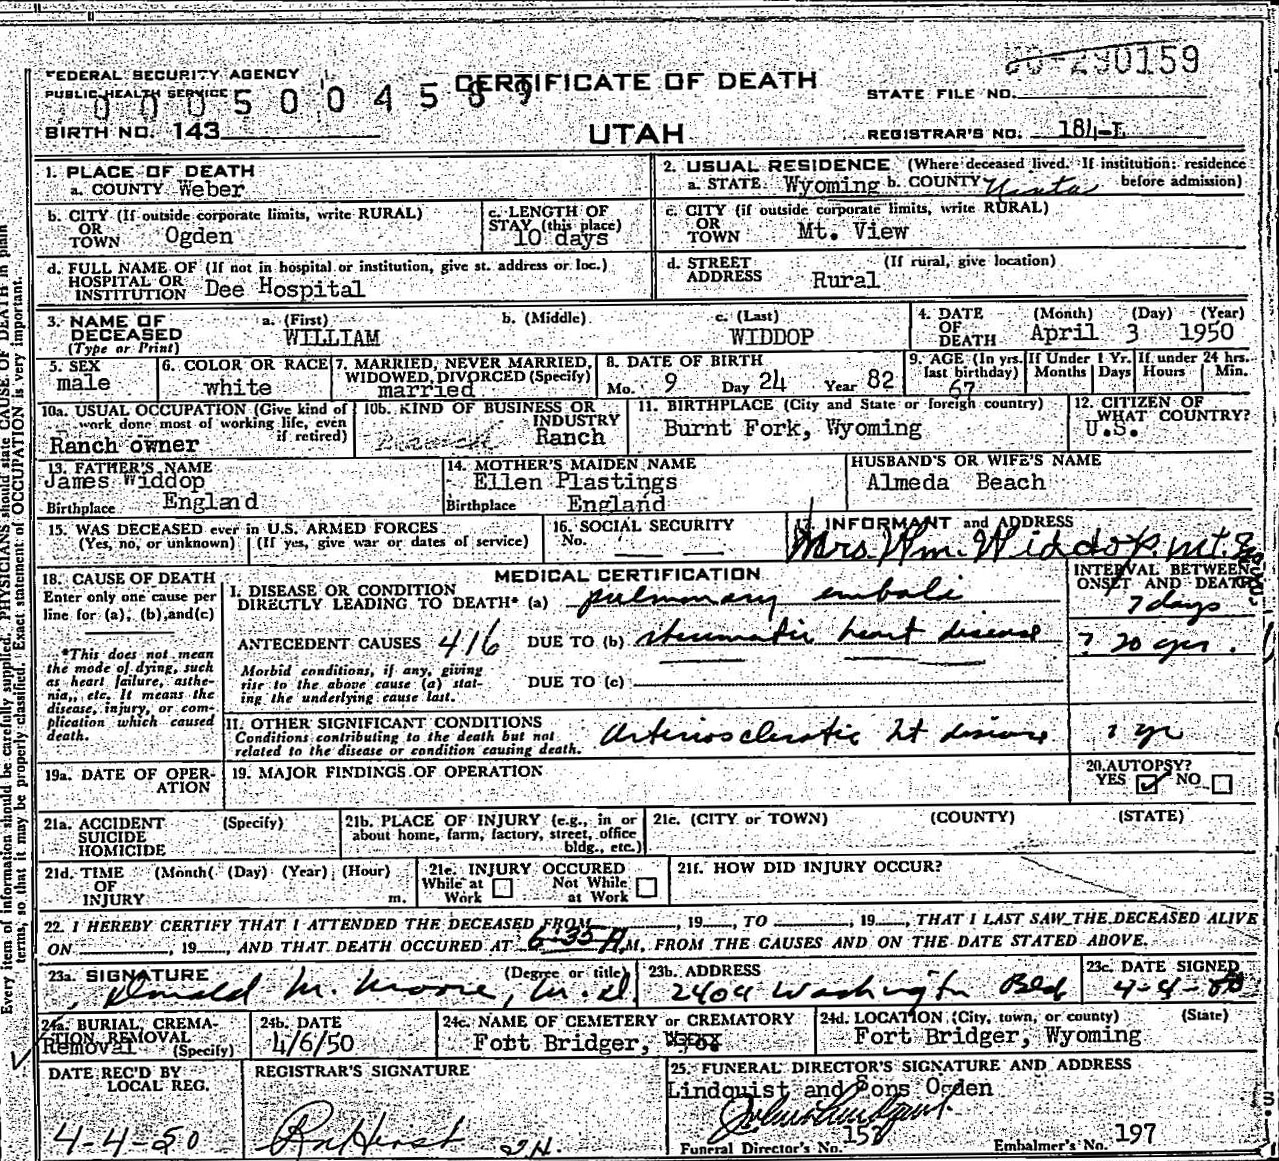 FEDERAL SECURITY AGENCY
PUBLIC HEALTH SERVICE
0005004589
CERTIFICATE OF DEATH
UTAH
BIRTH NO. 143
STATE FILE NO. 290159
REGISTRAR'S NO. 184-
1. PLACE OF DEATH
a. COUNTY Weber
2. USUAL RESIDENCE (Where deceased lived. If institution: residence before admission)
a. STATE Wyoming b. COUNTY Uinta
b. CITY (If outside corporate limits, write RURAL) OR TOWN Ogden
c. LENGTH OF STAY (this place) 10 days
c. CITY (if outside corporate limits, write RURAL) OR TOWN Mt. View
d. FULL NAME OF (If not in hospital or institution, give st. address or loc.) HOSPITAL OR INSTITUTION Dee Hospital
d. STREET ADDRESS (If rural, give location) Rural
3. NAME OF DECEASED (Type or Print)
a. (First) WILLIAM
b. (Middle)
c. (Last) WIDDOP
4. DATE OF DEATH (Month) (Day) (Year) April 3 1950
5. SEX male
6. COLOR OR RACE white
7. MARRIED, NEVER MARRIED, WIDOWED, DIVORCED (Specify) married
8. DATE OF BIRTH Mo. 9 Day 24 Year 82
9. AGE (In yrs. last birthday) 67
If Under 1 Yr. Months Days
If under 24 hrs. Hours Min.
10a. USUAL OCCUPATION (Give kind of work done most of working life, even if retired) Ranch owner
10b. KIND OF BUSINESS OR INDUSTRY Ranch
11. BIRTHPLACE (City and State or foreign country) Burnt Fork, Wyoming
12. CITIZEN OF WHAT COUNTRY? U.S.
13. FATHER'S NAME James Widdop
Birthplace England
14. MOTHER'S MAIDEN NAME Ellen Plastings
Birthplace England
HUSBAND'S OR WIFE'S NAME Almeda Beach
15. WAS DECEASED ever in U.S. ARMED FORCES
(Yes, no, or unknown) (If yes, give war or dates of service)
16. SOCIAL SECURITY No. — —
17. INFORMANT and ADDRESS
Mrs. Wm. Widdop. Mt.
18. CAUSE OF DEATH
Enter only one cause per line for (a), (b), and (c)
*This does not mean the mode of dying, such as heart failure, asthenia, etc. It means the disease, injury, or complication which caused death.
MEDICAL CERTIFICATION
INTERVAL BETWEEN ONSET AND DEATH
I. DISEASE OR CONDITION DIRECTLY LEADING TO DEATH* (a) pulmonary emboli 7 days
ANTECEDENT CAUSES 416 DUE TO (b) rheumatic heart disease ? 20 yrs.
Morbid conditions, if any, giving rise to the above cause (a) stating the underlying cause last.
DUE TO (c)
II. OTHER SIGNIFICANT CONDITIONS
Conditions contributing to the death but not related to the disease or condition causing death.
Arteriosclerotic ht disease yr
19a. DATE OF OPERATION
19. MAJOR FINDINGS OF OPERATION
20. AUTOPSY? YES ☑ NO ☐
21a. ACCIDENT SUICIDE HOMICIDE (Specify)
21b. PLACE OF INJURY (e.g., in or about home, farm, factory, street, office bldg., etc.)
21c. (CITY or TOWN) (COUNTY) (STATE)
21d. TIME OF INJURY (Month) (Day) (Year) (Hour) m.
21e. INJURY OCCURED While at Work ☐ Not While at Work ☐
21f. HOW DID INJURY OCCUR?
22. I HEREBY CERTIFY THAT I ATTENDED THE DECEASED FROM , 19 TO , 19 , THAT I LAST SAW THE DECEASED ALIVE
ON , 19 AND THAT DEATH OCCURED AT 6:35 P.M. FROM THE CAUSES AND ON THE DATE STATED ABOVE.
23a. SIGNATURE (Degree or title)
Donald M. Moore, M.D.
23b. ADDRESS
2404 Washington Bld
23c. DATE SIGNED
4-4-50
24a. BURIAL, CREMATION, REMOVAL (Specify) Removal
24b. DATE 4/6/50
24c. NAME OF CEMETERY or CREMATORY Fort Bridger,
24d. LOCATION (City, town, or county) (State) Fort Bridger, Wyoming
DATE REC'D BY LOCAL REG.
4-4-50
REGISTRAR'S SIGNATURE
25. FUNERAL DIRECTOR'S SIGNATURE AND ADDRESS
Lindquist and Sons Ogden
Funeral Director's No. 157
Embalmer's No. 197
Every item of information should be carefully supplied. PHYSICIANS should state CAUSE OF DEATH in plain
terms, so that it may be properly classified. Exact statement of OCCUPATION is very important.